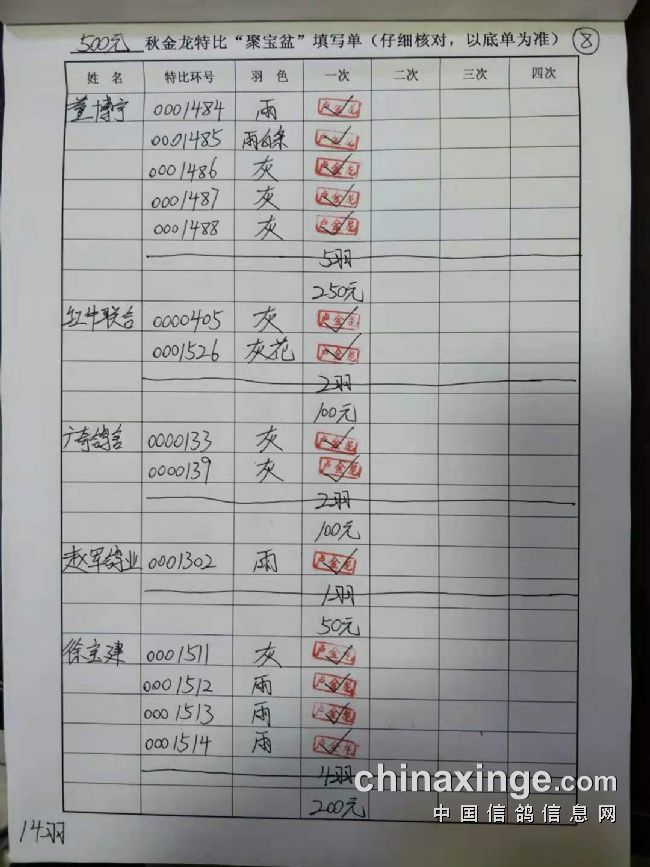 500元 秋金龙特比“聚宝盆”填写单（仔细核对，以底单为准） 8
姓 名 特比环号 羽 色 一次 二次 三次 四次
董博宇 0001484 雨 卢金龙
0001485 雨白条 卢金龙
0001486 灰 卢金龙
0001487 灰 卢金龙
0001488 灰 卢金龙
5羽
250元
红牛联合 0000405 灰 卢金龙
0001526 灰花 卢金龙
2羽
100元
广奔鸽舍 0000133 灰 卢金龙
0000139 灰 卢金龙
2羽
100元
赵军鸽业 0001302 雨 卢金龙
1羽
50元
徐宝建 0001511 灰 卢金龙
0001512 雨 卢金龙
0001513 雨 卢金龙
0001514 雨 卢金龙
4羽
200元
14羽
chinaxinge.com
中国信鸽信息网